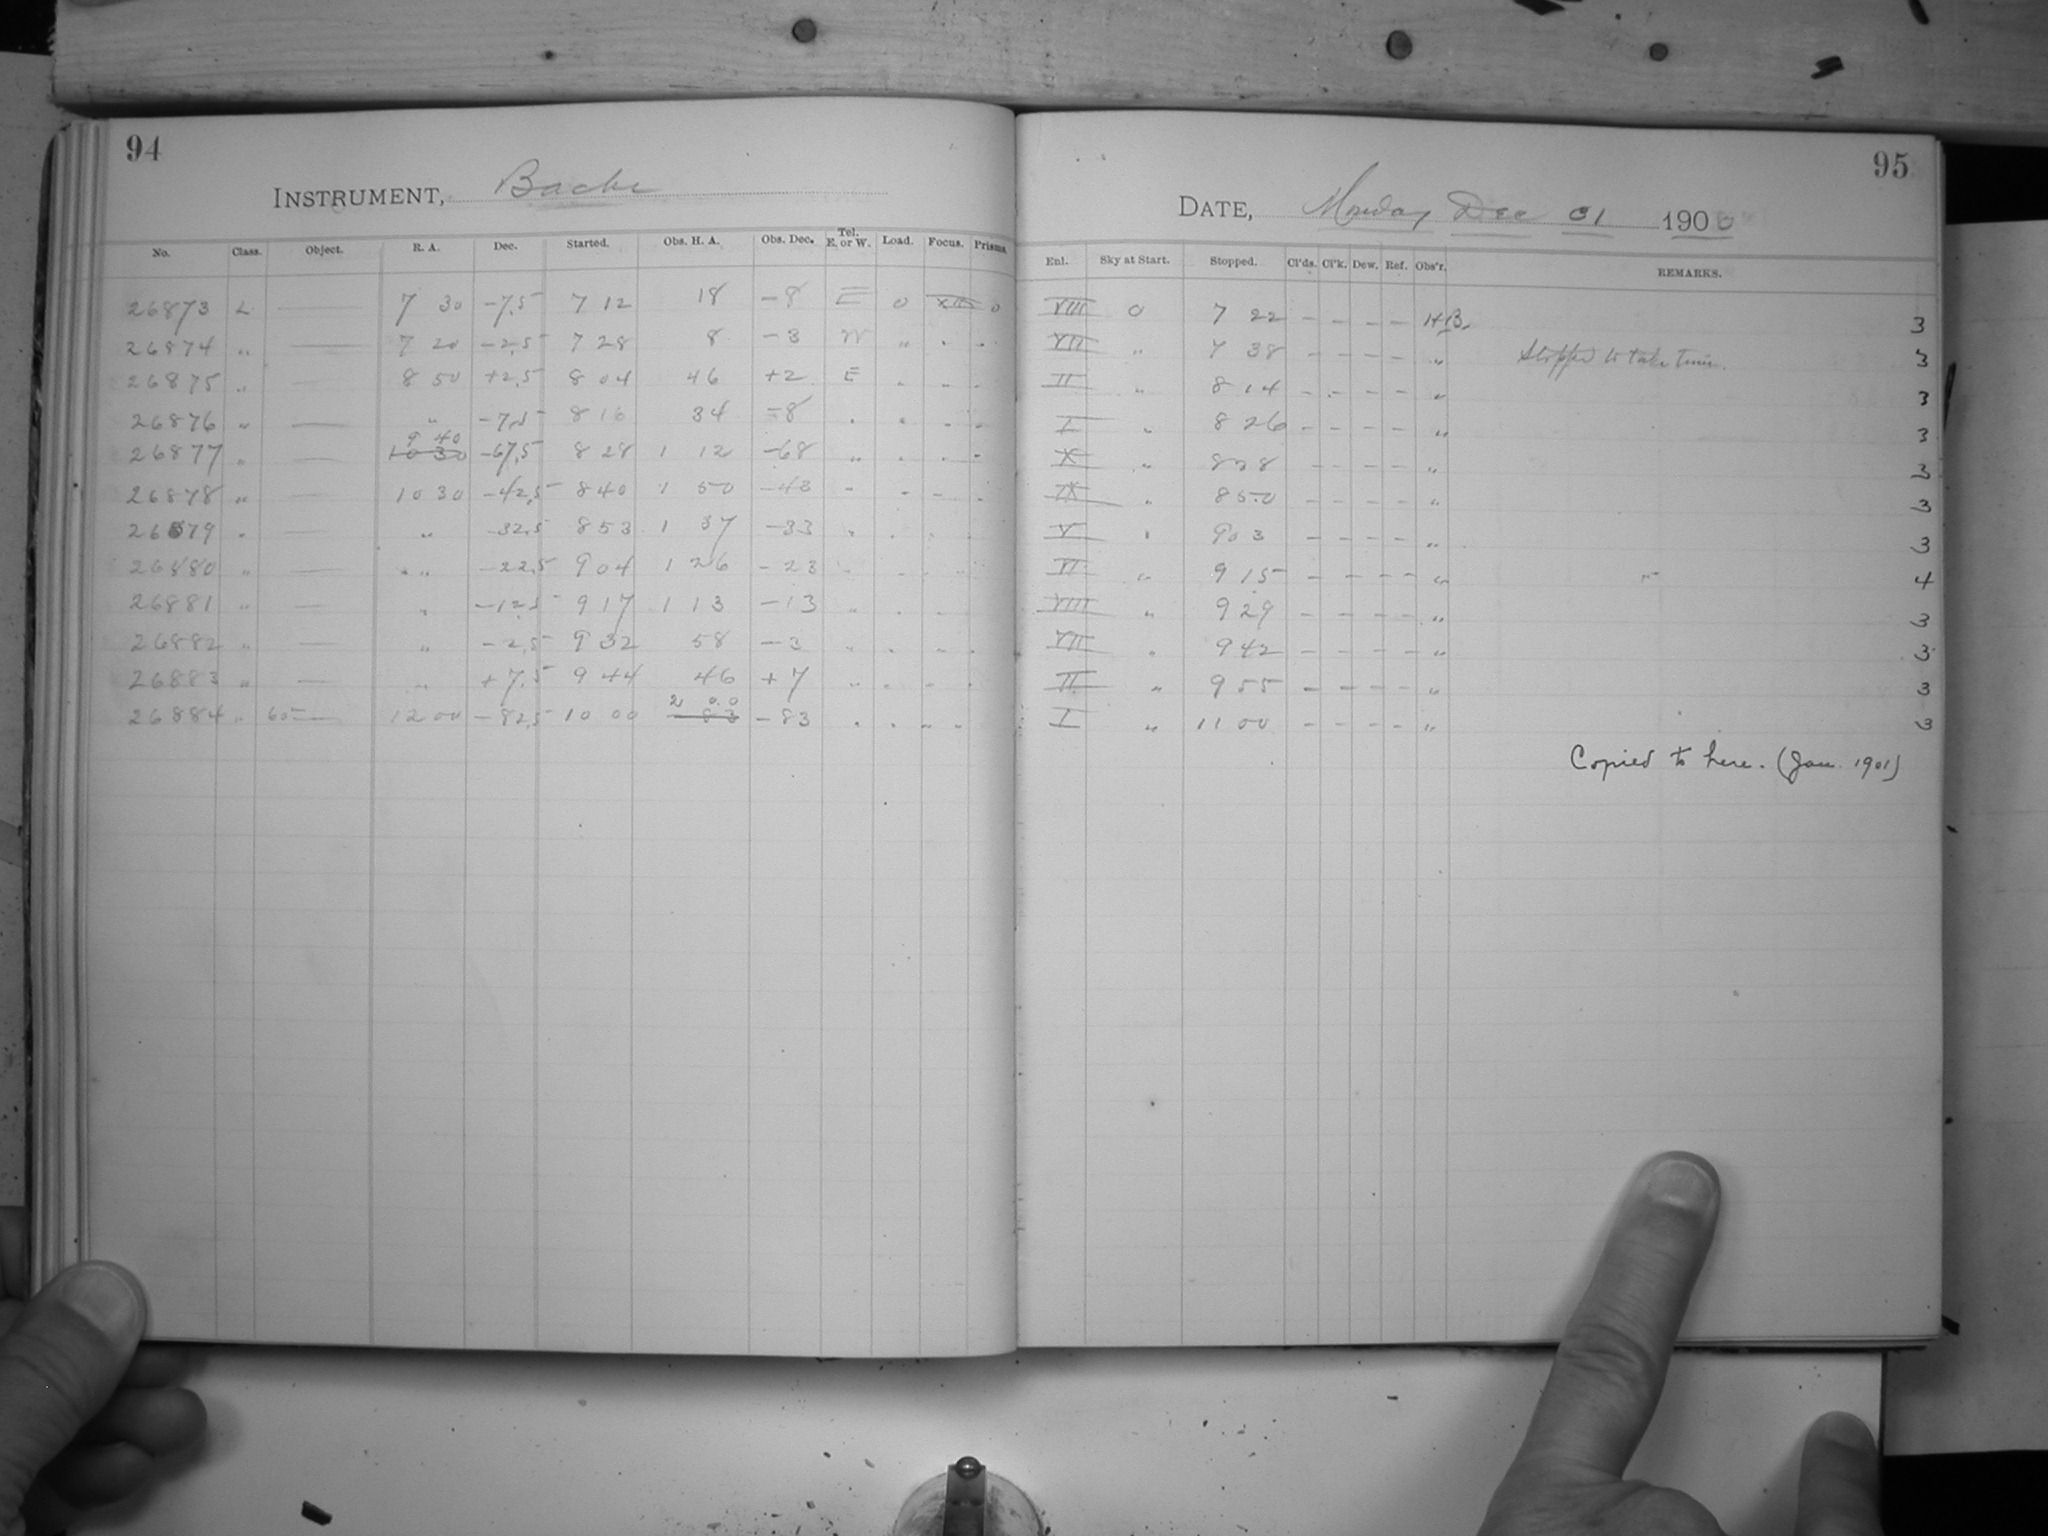 94
INSTRUMENT, Bache
No. Class. Object. R. A. Dec. Started. Obs. H. A. Obs. Dec. Tel. E. or W. Load. Focus. Prisms
26873 L — 7 30 -7.5 7 12 18 -8 E 0 XIII 0
26874 " — 7 20 -2.5 7 28 8 -3 W " " "
26875 " — 8 50 +2.5 8 04 46 +2 E " " "
26876 " — " -7.5 8 16 34 -8 " " " "
9 40
26877 " — 10 30 -67.5 8 28 1 12 -68 " " " "
26878 " — 10 30 -42.5 8 40 1 50 -43 " " " "
26879 " — " -32.5 8 53 1 37 -33 " " " "
26880 " — " -22.5 9 04 1 26 -23 " " " "
26881 " — " -12.5 9 17 1 13 -13 " " " "
26882 " — " -2.5 9 32 58 -3 " " " "
26883 " — " +7.5 9 44 46 +7 " " " "
2 00
26884 " 60 — 12 00 -82.5 10 00 83 -83 " " " "
95
DATE, Monday Dec 31 1900
Enl. Sky at Start. Stopped. Cl'ds. Cl'k. Dew. Ref. Obs'r. REMARKS.
VIII 0 7 22 - - - - HB. 3
VII " 7 38 - - - - " Stopped to take time. 3
II " 8 14 - - - - " 3
I " 8 26 - - - - " 3
X " 8 38 - - - - " 3
IX " 8 50 - - - - " 3
V " 9 03 - - - - " 3
VI " 9 15 - - - - " 4
VIII " 9 29 - - - - " 3
VII " 9 42 - - - - " 3
II " 9 55 - - - - " 3
I " 11 00 - - - - " 3
Copied to here. (Jan. 1901)